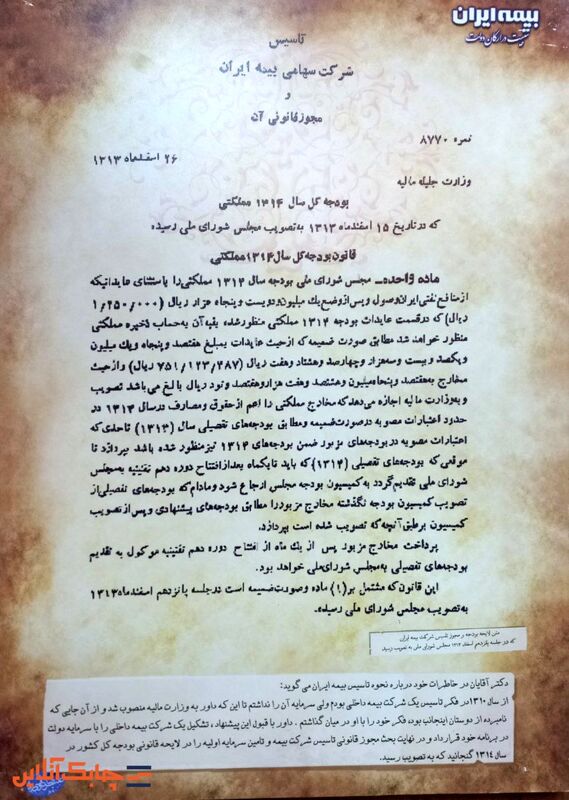 بیمه ایران
تاسیس
شرکت سهامی بیمه ایران
و
مجوز قانونی آن
نمره ۸۷۷۰
۲۶ اسفندماه ۱۳۱۳
وزارت جلیله مالیه
بودجه کل سال ۱۳۱۴ مملکتی
که در تاریخ ۱۵ اسفندماه ۱۳۱۳ به تصویب مجلس شورای ملی رسیده
قانون بودجه کل سال ۱۳۱۴ مملکتی
ماده واحده- مجلس شورای ملی بودجه سال ۱۳۱۴ مملکتی را باستثنای عایداتیکه
از منافع نفتی ایران وصول و پس از وضع یك میلیون و دویست و پنجاه هزار ریال (۱/۲۵۰/۰۰۰
ریال) که در قسمت عایدات بودجه ۱۳۱۴ مملکتی منظور شده بقیه آن به حساب ذخیره مملکتی
منظور خواهد شد مطابق صورت ضمیمه که از حیث عایدات بمبلغ هفتصد و پنجاه و یك میلیون
و یکصد و بیست و سه هزار و چهارصد و هشتاد و هفت ریال (۷۵۱/۱۲۳/۴۸۷ ریال) و از حیث
مخارج به هفتصد و پنجاه میلیون و هشتصد و هفت هزار و هفتصد و نود ریال بالغ می باشد تصویب
و به وزارت مالیه اجازه می دهد که مخارج مملکتی را اعم از حقوق و مصارف در سال ۱۳۱۴ در
حدود اعتبارات مصوبه در صورت ضمیمه و مطابق بودجه های تفصیلی سال (۱۳۱۳) تا حدی که
اعتبارات مصوبه در بودجه های مزبور ضمن بودجه های ۱۳۱۴ نیز منظور شده باشد بپردازد تا
موقعی که بودجه های تفصیلی (۱۳۱۴) که باید تا یکماه بعد از افتتاح دوره دهم تقنینیه به مجلس
شورای ملی تقدیم گردد به کمیسیون بودجه مجلس ارجاع شود و مادام که بودجه های تفصیلی از
تصویب کمیسیون بودجه نگذشته مخارج مزبور را مطابق بودجه های پیشنهادی و پس از تصویب
کمیسیون بر طبق آنچه که تصویب شده است بپردازد.
پرداخت مخارج مزبور پس از یك ماه از افتتاح دوره دهم تقنینیه موکول به تقدیم
بودجه های تفصیلی به مجلس شورای ملی خواهد بود.
این قانون که مشتمل بر (۱) ماده و صورت ضمیمه است در جلسه پانزدهم اسفندماه ۱۳۱۳
به تصویب مجلس شورای ملی رسیده.
متن لایحه بودجه و مجوز تاسیس شرکت بیمه ایران
که در جلسه پانزدهم اسفند ۱۳۱۳ مجلس شورای ملی به تصویب رسید
دکتر آقایان در خاطرات خود درباره نحوه تاسیس بیمه ایران می گوید:
از سال ۱۳۱۰ در فکر تاسیس یک شرکت بیمه داخلی بودم ولی سرمایه آن را نداشتم تا این که داور به وزارت مالیه منصوب شد و از آن جایی که
نامبرده از دوستان اینجانب بوده فکر خود را با او در میان گذاشتم . داور با قبول این پیشنهاد ، تشکیل یک شرکت بیمه داخلی را با سرمایه دولت
در برنامه خود قرار داد و در نهایت بحث مجوز قانونی تاسیس شرکت بیمه و تامین سرمایه اولیه را در لایحه قانونی بودجه کل کشور در
سال ۱۳۱۴ گنجانید که به تصویب رسید.
چابک آنلاین